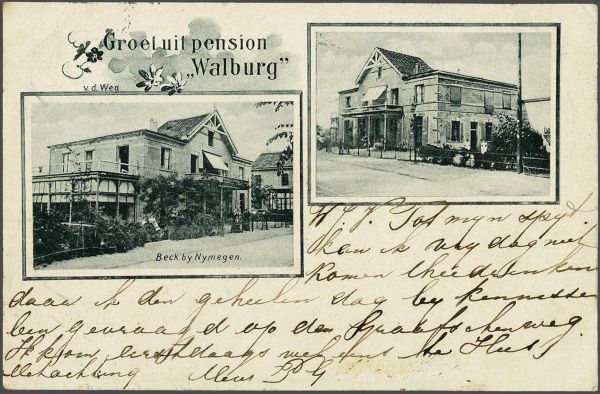 Groet uit pension
„Walburg"
v. d. Weg
Beck by Nymegen.
W. E. J. Tot myn spyt
kan ik vrydag niet
komen theedrinken
daar ik den geheelen dag by kennissen
ben gevraagd op den Graafschenweg.
Ik kom eerstdaags wel eens te Huis
Uw achting